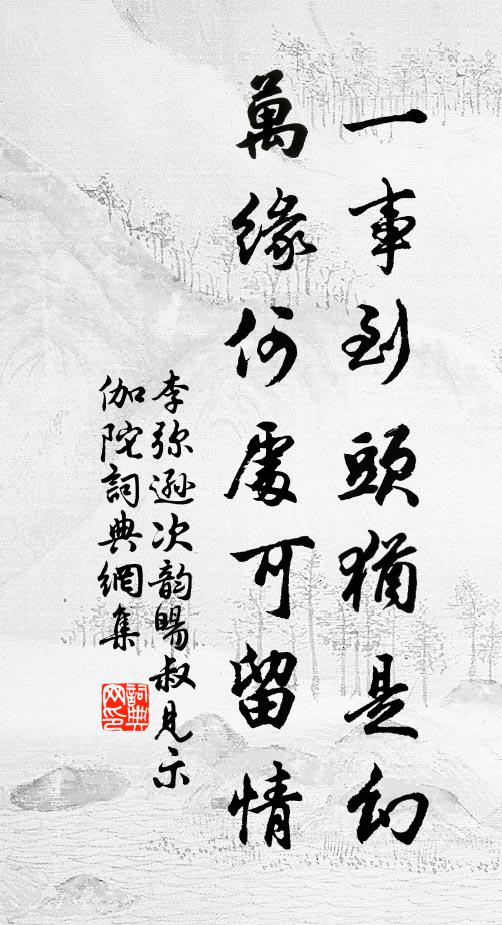 一事到頭猶是幻
萬緣何處可留情
李弥遜次韵暘叔見示
伽陀詞典網集
詞典網印